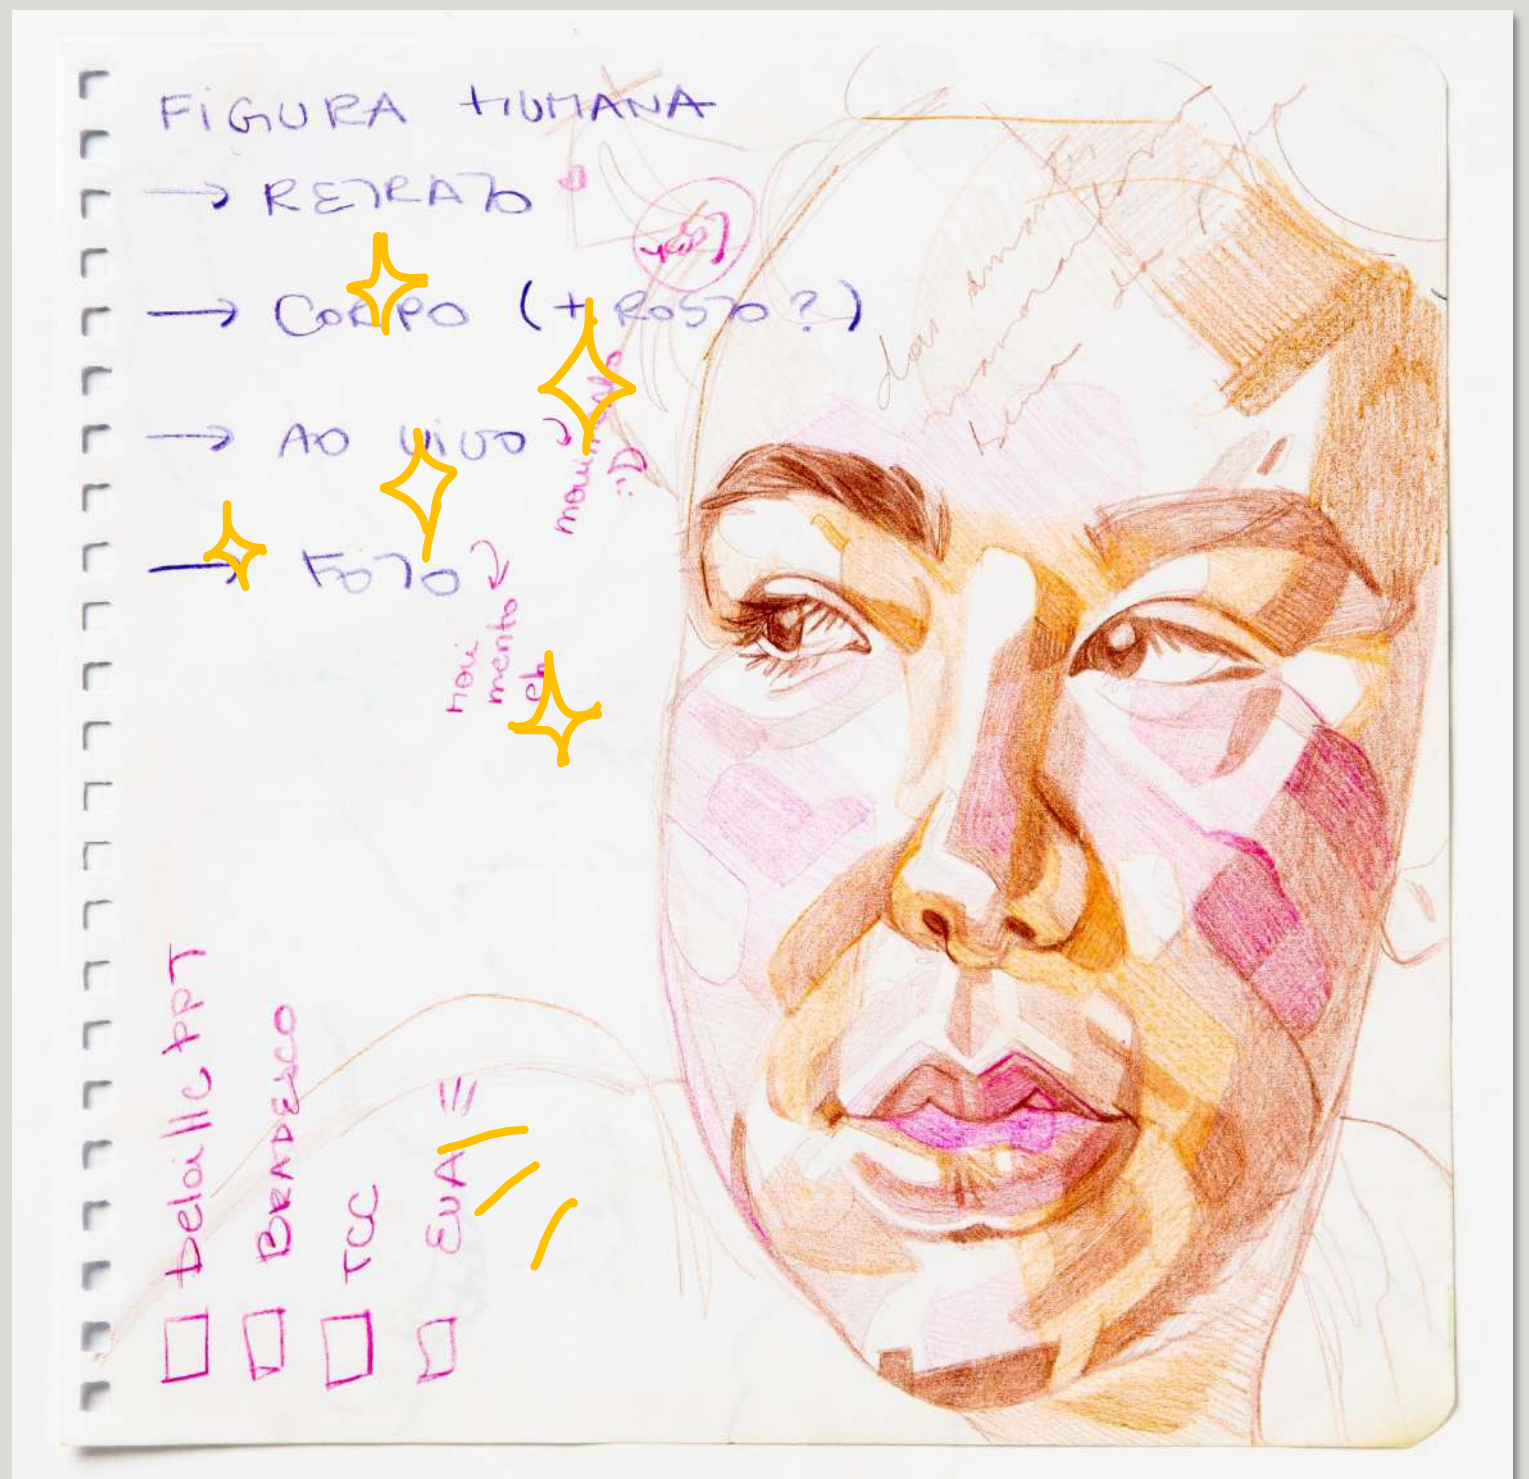 FiGURA HUMANA
→ RETRATO
→ CORPO (+ ROSTO?)
→ AO VIVO
movimento
:D
→ FOTO
movi
mento
eh
□ Deloitte PPT
□ BRADESCO
□ TCC
□ EVA